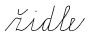 židle